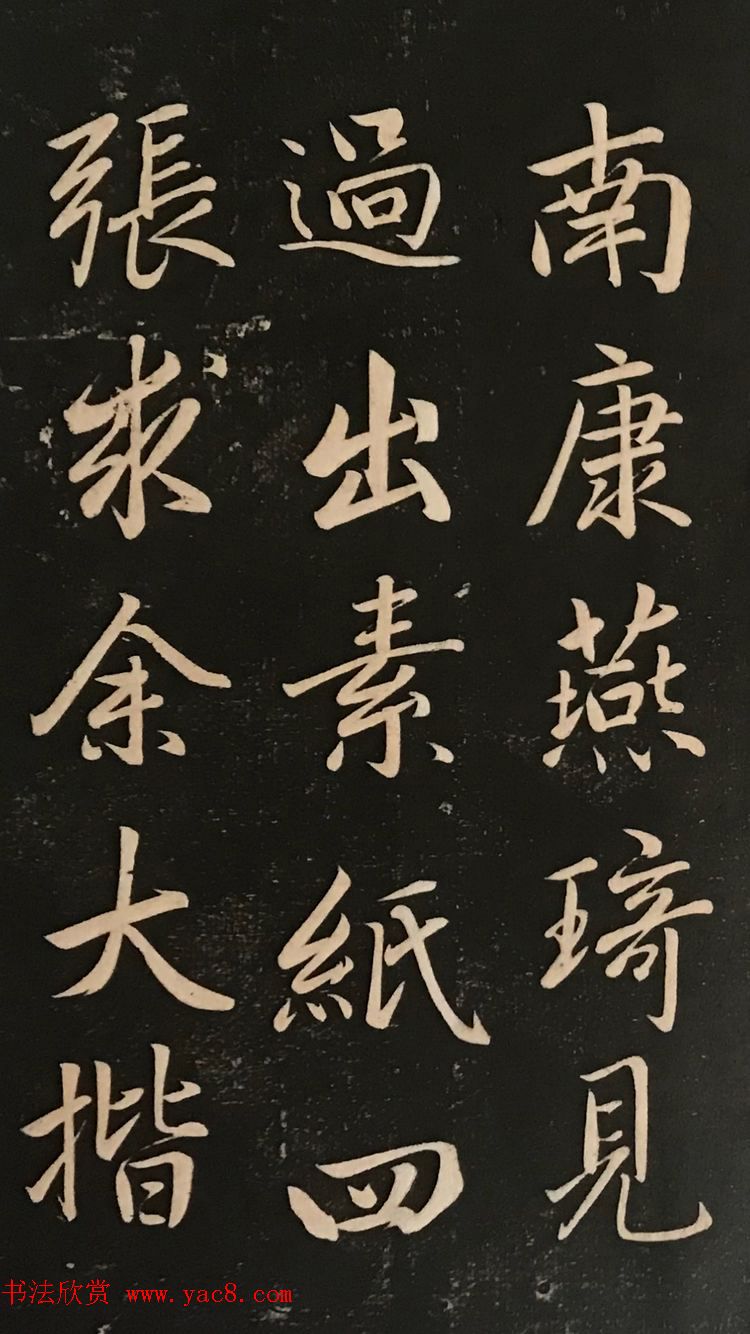 南康燕琦見
過出素紙四
張求余大揩
书法欣赏 www.yac8.com